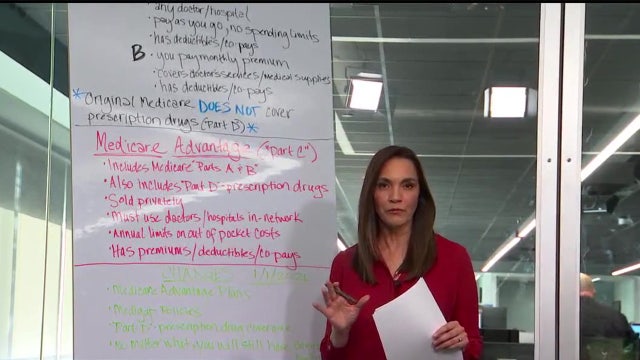 any doctor/hospital
• pay as you go, no spending limits
• has deductibles/co-pays
B • you pay monthly premium
• covers doctor's services/medical supplies
• has deductibles/co-pays
*Original Medicare DOES NOT cover
prescription drugs ("Part D")*
Medicare Advantage ("Part C")
• Includes Medicare "Parts A + B"
• Also includes "Part D"-prescription drugs
• Sold privately
• Must use doctors/hospitals in-network
• Annual limits on out of pocket costs
• Has premiums/deductibles/co-pays
CHANGES 1/1/
• Medicare Advantage Plans
• Medigap Policies
• "Part D"-prescription drug coverage
• No matter what, you will still have